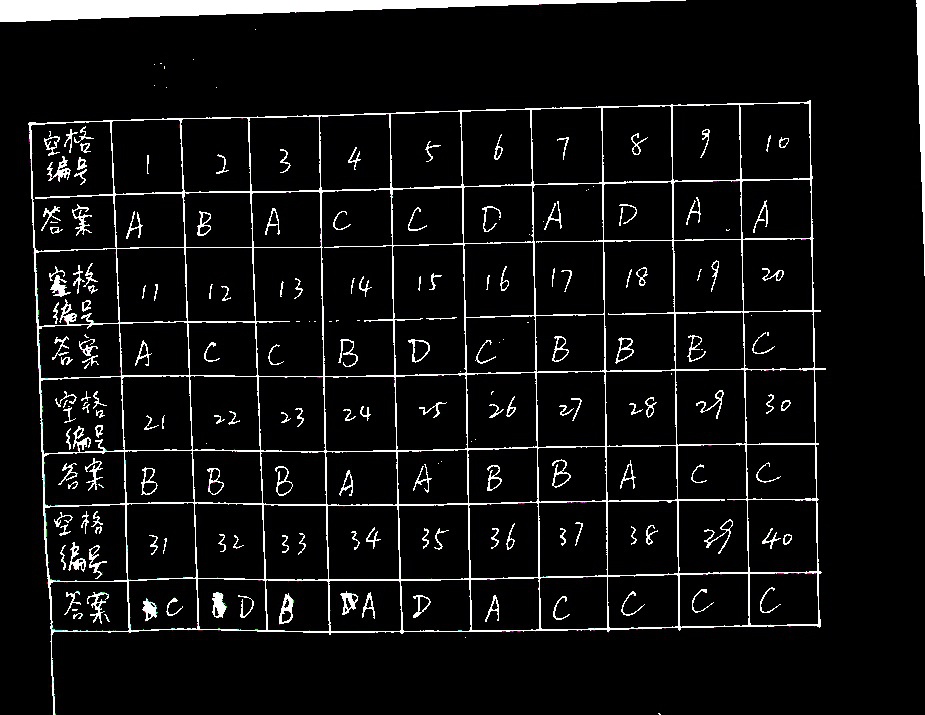 空格编号 1 2 3 4 5 6 7 8 9 10
答案 A B A C C D A D A A
空格编号 11 12 13 14 15 16 17 18 19 20
答案 A C C B D C B B B C
空格编号 21 22 23 24 25 26 27 28 29 30
答案 B B B A A B B A C C
空格编号 31 32 33 34 35 36 37 38 39 40
答案 C D B A D A C C C C